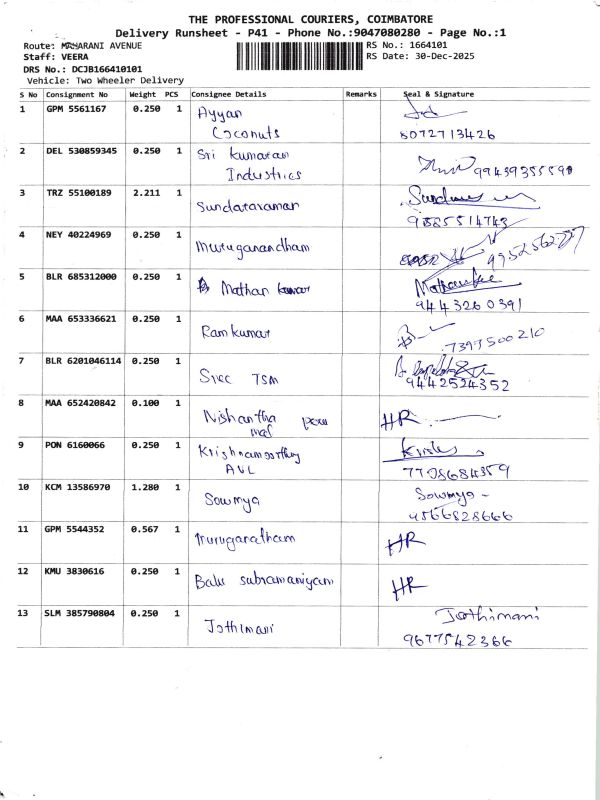 THE PROFESSIONAL COURIERS, COIMBATORE
Delivery Runsheet - P41 - Phone No.:9047080280 - Page No.:1
Route: MAHARANI AVENUE
RS No.: 1664101
Staff: VEERA
RS Date: 30-Dec-2025
DRS No.: DCJB166410101
Vehicle: Two Wheeler Delivery
S No Consignment No Weight PCS Consignee Details Remarks Seal & Signature
1 GPM 5561167 0.250 1 Ayyan
Coconuts 8072713426
2 DEL 530859345 0.250 1 Sri Kumaran
Industries
3 TRZ 55100189 2.211 1
Sundataraman
4 NEY 40224969 0.250 1
Muruganandham
5 BLR 685312000 0.250 1 Mathan kumar
9443260391
6 MAA 653336621 0.250 1
Ramkumar 7397500210
7 BLR 6201046114 0.250 1
Sree TSM 9442524352
8 MAA 652420842 0.100 1
Nishantha HR
9 PON 6160066 0.250 1
Krishnamoorthy
AVL 7708684359
10 KCM 13586970 1.280 1
Sowmya Sowmya
11 GPM 5544352 0.567 1
HR
12 KMU 3830616 0.250 1
Balu subramaniyam HR
13 SLM 385790804 0.250 1 Jothimani
Jothimani 9677542366